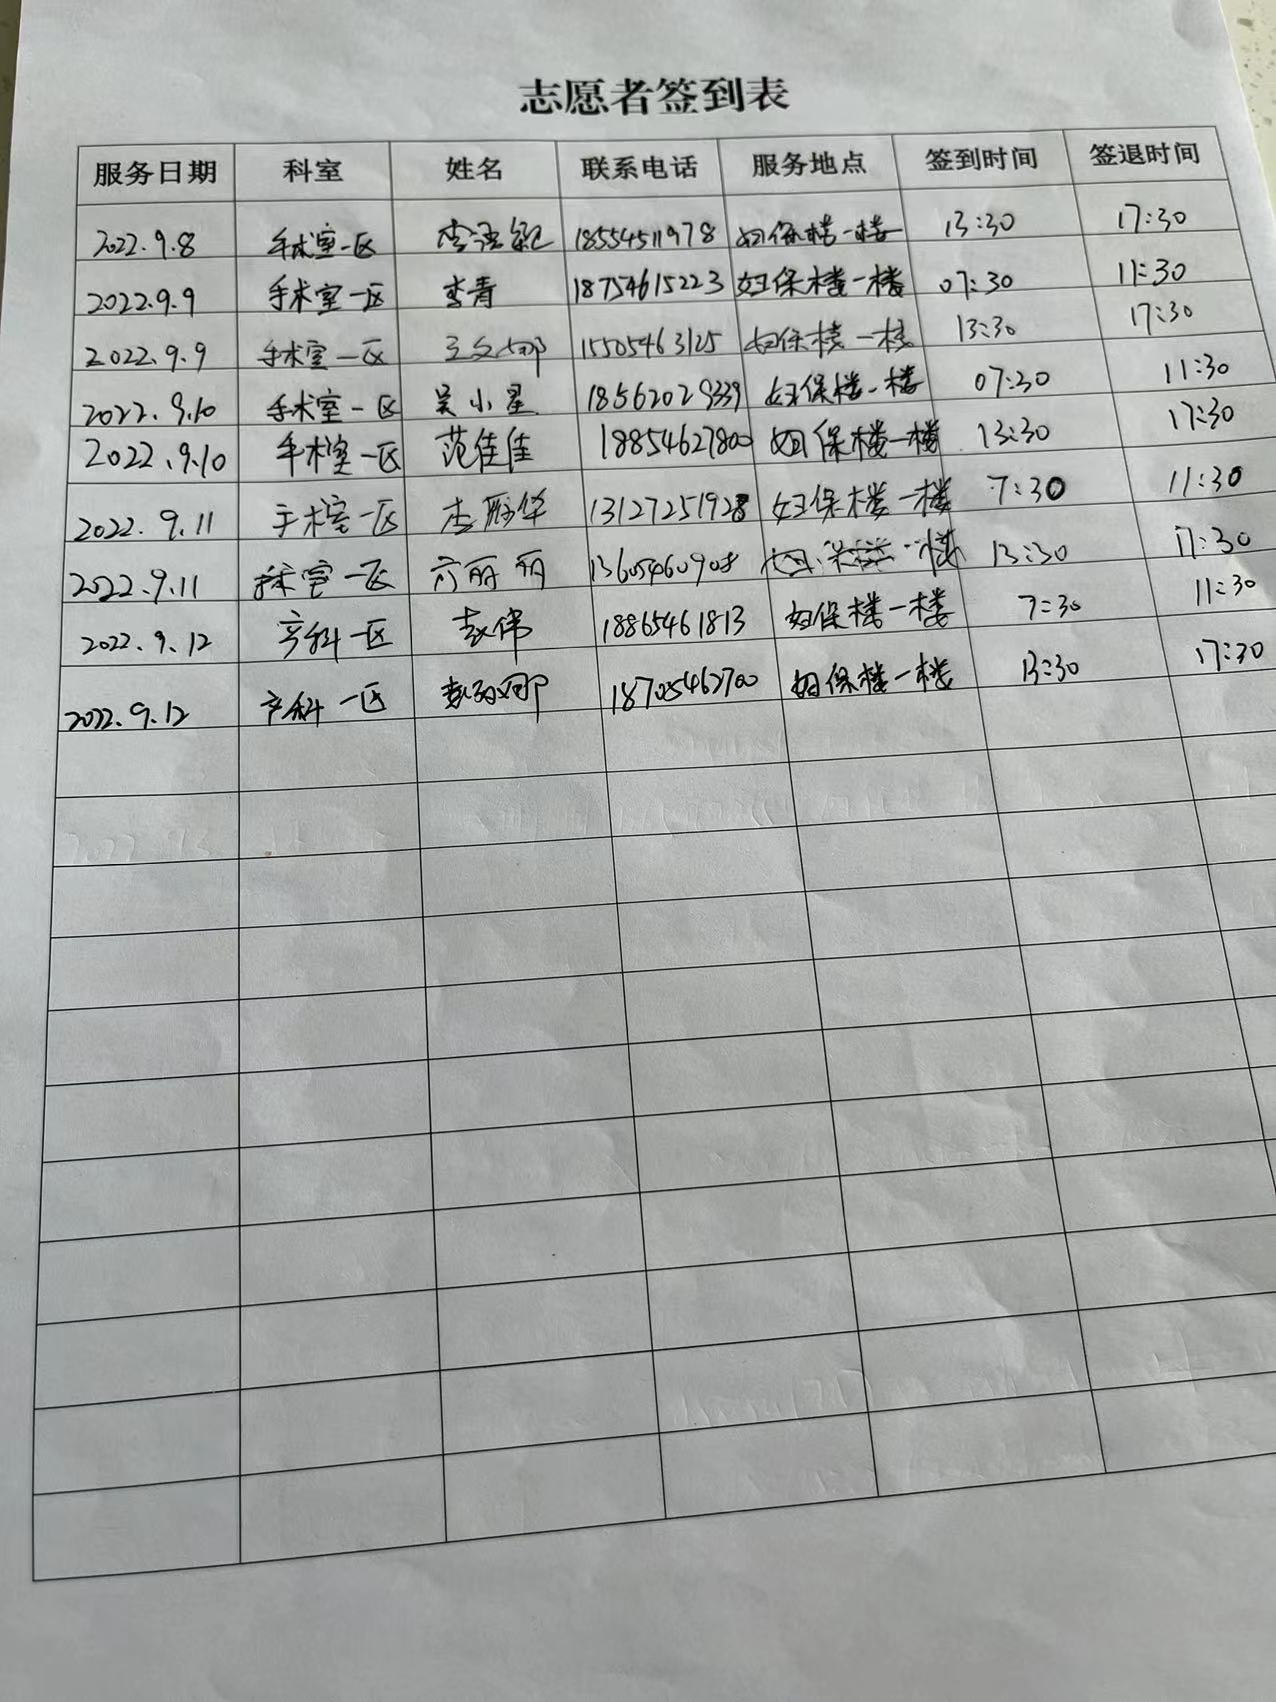 志愿者签到表
服务日期 科室 姓名 联系电话 服务地点 签到时间 签退时间
2022.9.8 手术室一区 李 18554511978 妇保楼一楼 13:30 17:30
2022.9.9 手术室一区 李青 18754615223 妇保楼一楼 07:30 11:30
2022.9.9 手术室一区 王文娜 15505463125 妇保楼一楼 13:30 17:30
2022.9.10 手术室一区 吴小星 18562029339 妇保楼一楼 07:30 11:30
2022.9.10 手术室一区 范佳佳 18854627800 妇保楼一楼 13:30 17:30
2022.9.11 手术室一区 李 华 13127251928 妇保楼一楼 7:30 11:30
2022.9.11 手术室一区 丽丽 13605460908 妇保楼一楼 13:30 17:30
2022.9.12 产科一区 赵伟 18865461813 妇保楼一楼 7:30 11:30
2022.9.12 产科一区 娜 18705462700 妇保楼一楼 13:30 17:30